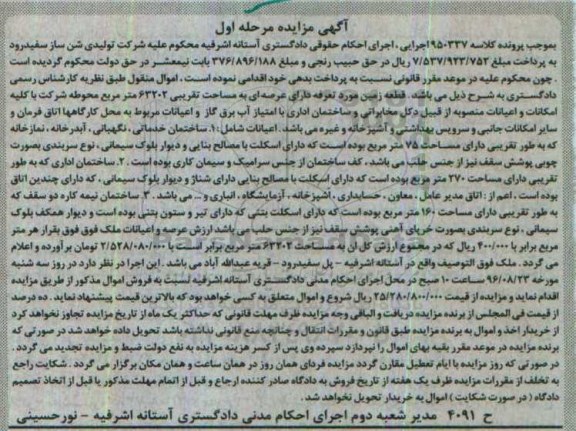 آگهی مزایده مرحله اول
بموجب پرونده کلاسه ۹۵۰۳۳۷ اجرایی ، اجرای احکام حقوقی دادگستری آستانه اشرفیه محکوم علیه شرکت تولیدی شن ساز سفیدرود
به پرداخت مبلغ ۷/۵۳۷/۹۲۳/۷۵۲ ریال در حق حبیب رنجی و مبلغ ۳۷۶/۸۹۶/۱۸۸ بابت نیمعشر در حق دولت محکوم گردیده است
. چون محکوم علیه در موعد مقرر قانونی نسبت به پرداخت بدهی خود اقدامی نموده است ، اموال منقول طبق نظریه کارشناس رسمی
دادگستری به شرح ذیل می باشد . قطعه زمین مورد تعرفه دارای عرصه ای به مساحت تقریبی ۶۳۲۰۲ متر مربع محوطه شرکت با کلیه
امکانات و اعیانات منصوبه از قبیل دکل مخابراتی و ساختمان اداری با امتیاز آب برق گاز و اعیانات مربوط به محل کارگاهها اتاق فرمان و
سایر امکانات جانبی و سرویس بهداشتی و آشپزخانه و غیره می باشد . اعیانات شامل : ۱. ساختمان خدماتی ، نگهبانی ، آبدرخانه ، نمازخانه
که به طور تقریبی دارای مساحت ۷۵ متر مربع بوده است که دارای اسکلت با مصالح بنایی و دیوار بلوک سیمانی ، نوع سربندی بصورت
چوبی پوشش سقف نیز از جنس حلب می باشد ، کف ساختمان از جنس سرامیک و سیمان کاری بوده است . ۲. ساختمان اداری که به طور
تقریبی دارای مساحت ۲۷۰ متر مربع بوده است که دارای اسکلت با مصالح بنایی دارای شناژ و دیوار بلوک سیمانی ، که دارای چندین اتاق
بوده است . اعم از : اتاق مدیر عامل ، معاون ، حسابداری ، آشپزخانه ، آزمایشگاه ، انباری و ... می باشد . ۳. ساختمان نیمه کاره دو سقف که
به طور تقریبی دارای مساحت ۱۶۰ متر مربع بوده است که دارای اسکلت بتنی که دارای تیر و ستون بتنی بوده است و دیوار همکف بلوک
سیمانی ، نوع سربندی بصورت خرپای آهنی پوشش سقف نیز از جنس حلب می باشد ارزش عرصه و اعیانات ملک فوق فوق بقرار هر متر
مربع برابر با ۴۰۰/۰۰۰ ریال که در مجموع ارزش کل آن به مساحت ۶۳۲۰۲ متر مربع برابر است با ۲/۵۲۸/۰۸۰/۰۰۰ تومان برآورده و اعلام
می گردد . ملک فوق التوصیف واقع در آستانه اشرفیه - پل سفیدرود - قریه عبداله آباد می باشد . این اجرا در نظر دارد در روز سه شنبه
مورخه ۹۶/۰۸/۲۳ ساعت ۱۰ صبح در محل اجرای احکام مدنی دادگستری آستانه اشرفیه نسبت به فروش اموال مذکور از طریق مزایده
اقدام نماید و مزایده از قیمت ۲۵/۲۸۰/۸۰۰/۰۰۰ ریال شروع و اموال متعلق به کسی خواهد بود که بالاترین قیمت پیشنهاد نماید . ده درصد
از قیمت فی المجلس از برنده مزایده دریافت و الباقی وجه مزایده ظرف مهلت قانونی که حداکثر یک ماه از تاریخ مزایده تجاوز نخواهد کرد
از خریدار اخذ و اموال به برنده مزایده طبق قانون و مقررات انتقال و چنانچه منع قانونی نداشته باشد تحویل داده خواهد شد در صورتی که
برنده مزایده در موعد مقرر بقیه بهای اموال را نپردازد سپرده وی پس از کسر هزینه مزایده به نفع دولت ضبط و مزایده تجدید می گردد .
در صورتی که روز مزایده با ایام تعطیل مقارن گردد مزایده فردای همان روز در همان ساعت و همان مکان برگزار می گردد . شکایت راجع
به تخلف از مقررات مزایده ظرف یک هفته از تاریخ فروش به دادگاه صادر کننده ارجاع و قبل از اتمام مهلت مذکور یا قبل از اتخاذ تصمیم
دادگاه ( در صورت شکایت ) اموال به خریدار تحویل نخواهد شد .
ح ۴۰۹۱ مدیر شعبه دوم اجرای احکام مدنی دادگستری آستانه اشرفیه - نورحسینی